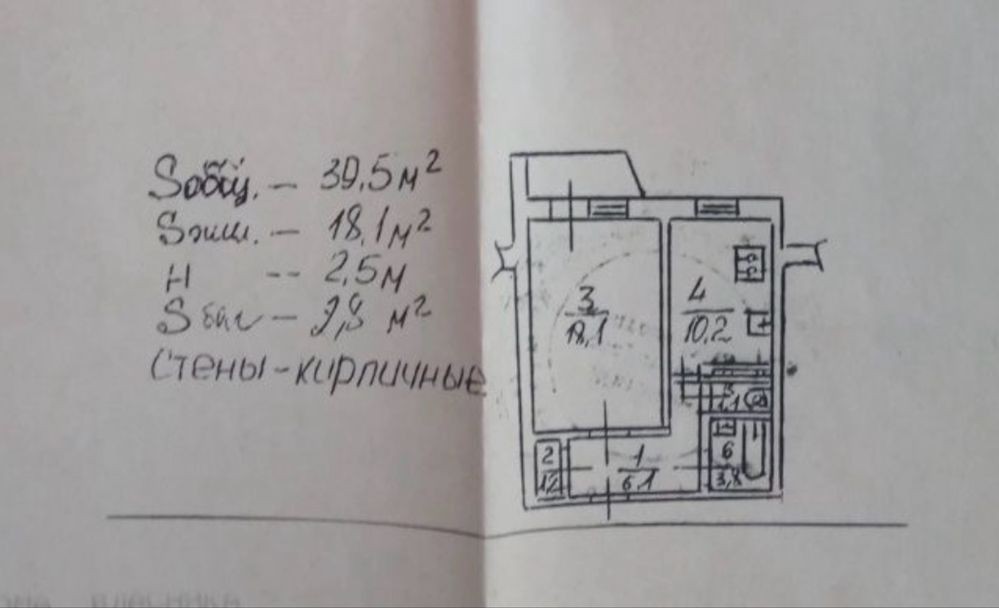 Sобщ. - 39,5 м²
Sжил. - 18,1 м²
H -- 2,5 м
S бал - м²
Стены-кирпичные
3
18,1
4
10,2
5
1,1
2
1,2
1
6,1
6
3,8